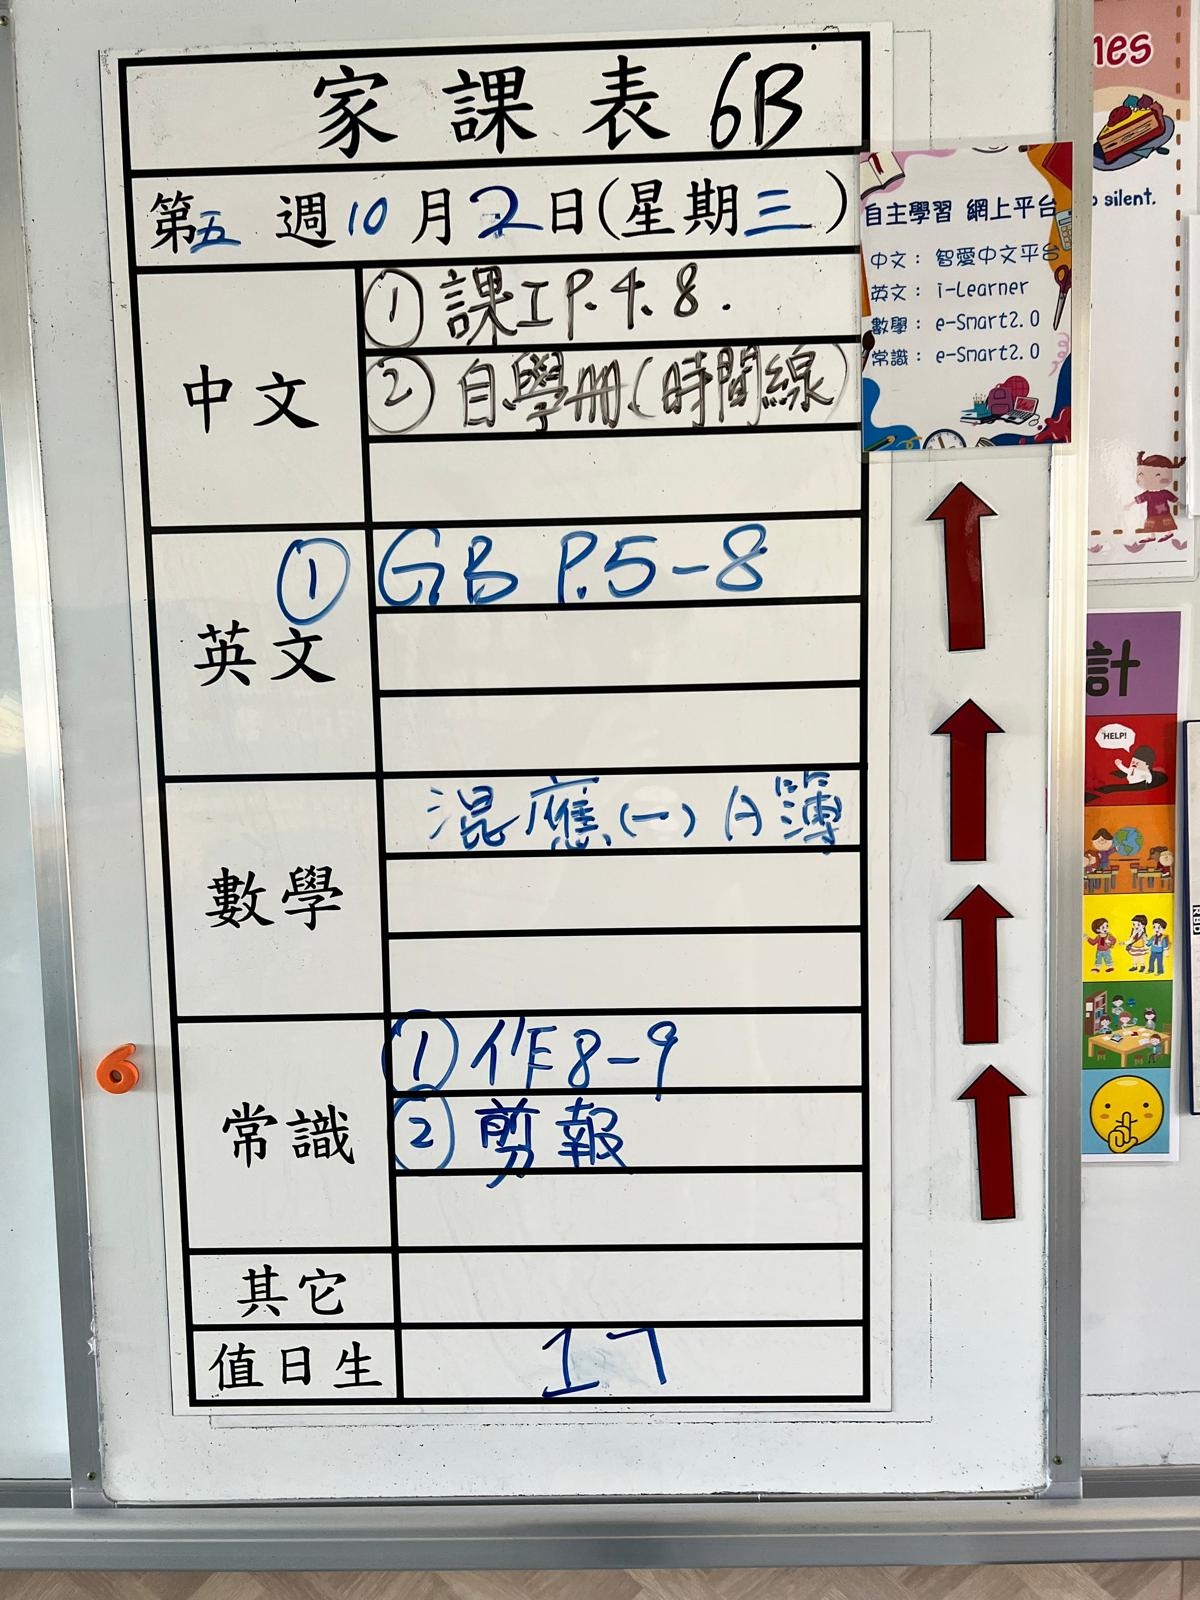 家課表 6B
第五週10月2日(星期三)
中文
① 課工 P.4.8.
② 自學冊(時間線)
英文
① GB P.5-8
數學
混應(一) A簿
常識
① 作8-9
② 剪報
其它
值日生
17
6
自主學習 網上平台
中文： 智愛中文平台
英文： i-Learner
數學： e-Smart2.0
常識： e-Smart2.0
silent.
計
HELP!